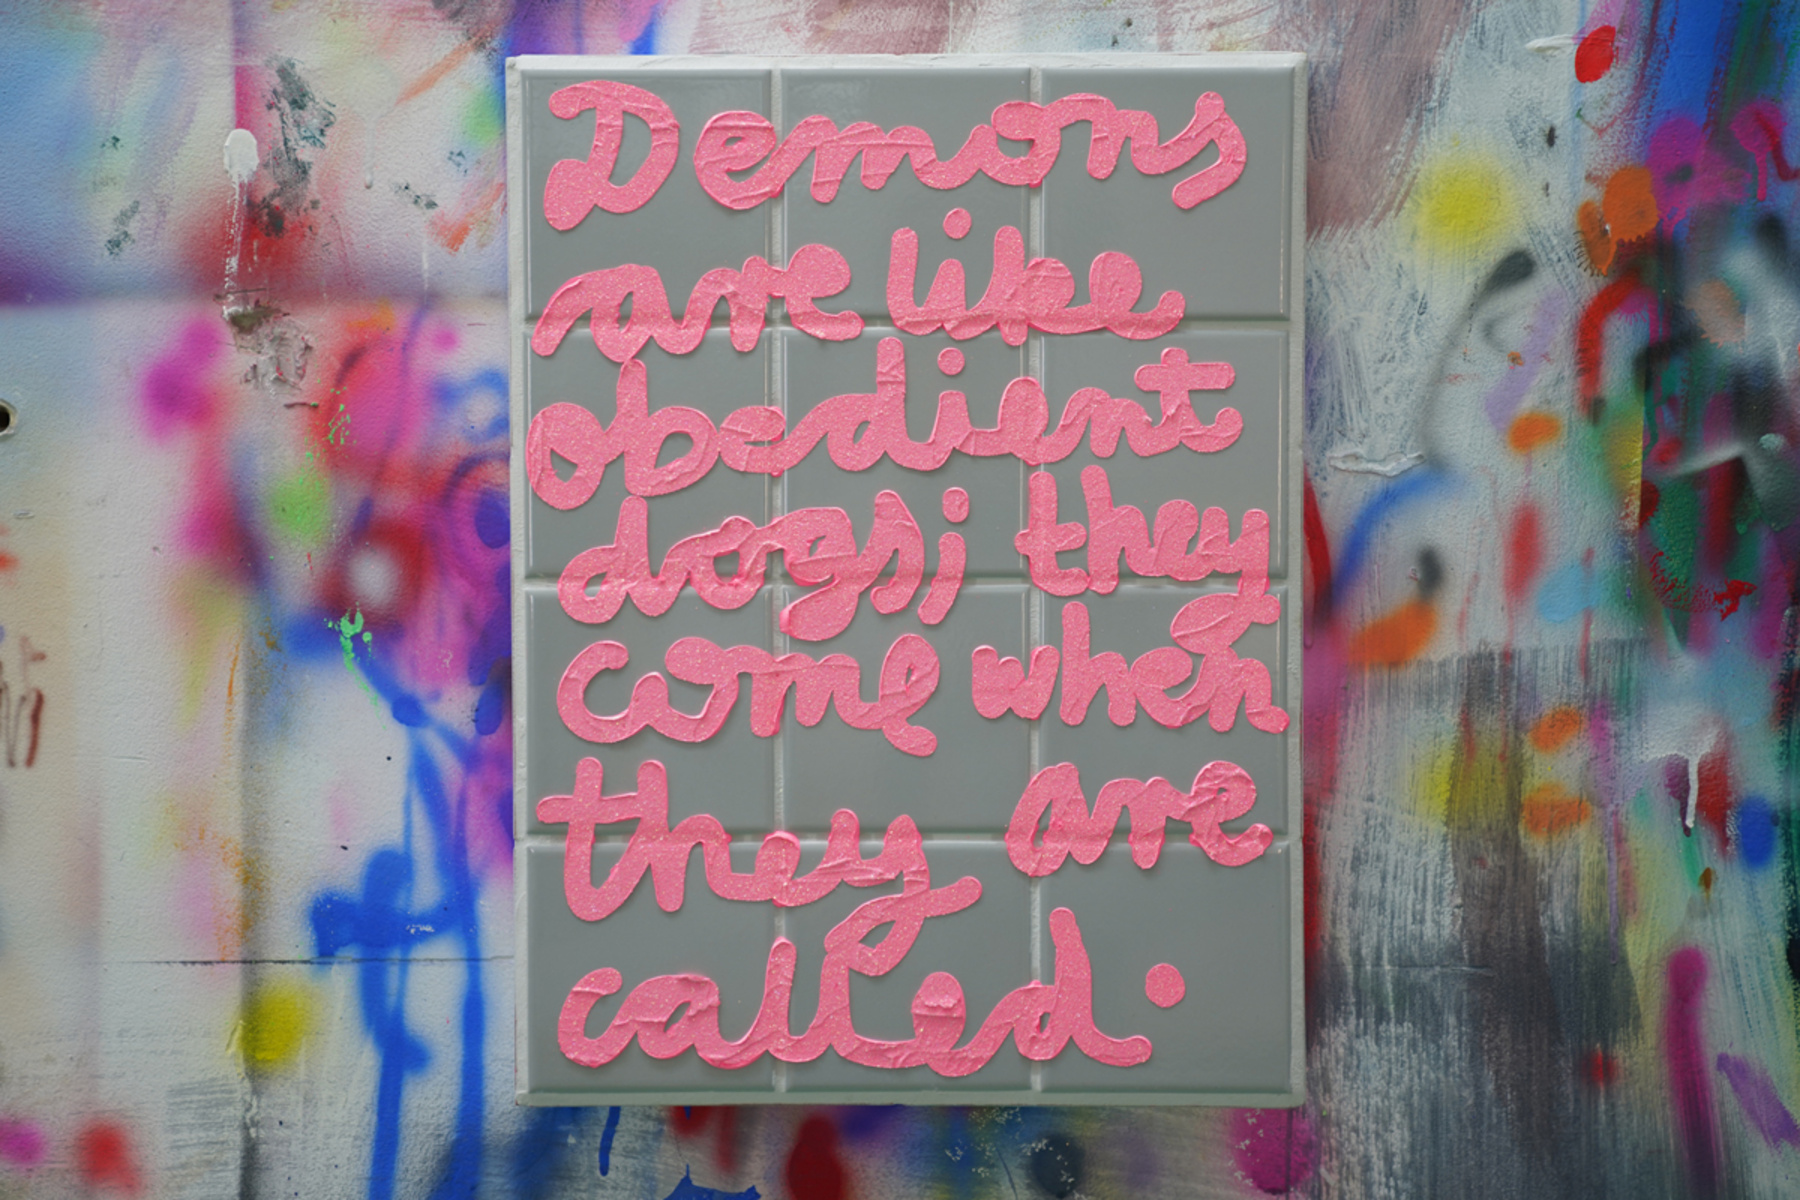 Demons
are like
obedient
dogs; they
come when
they are
called.